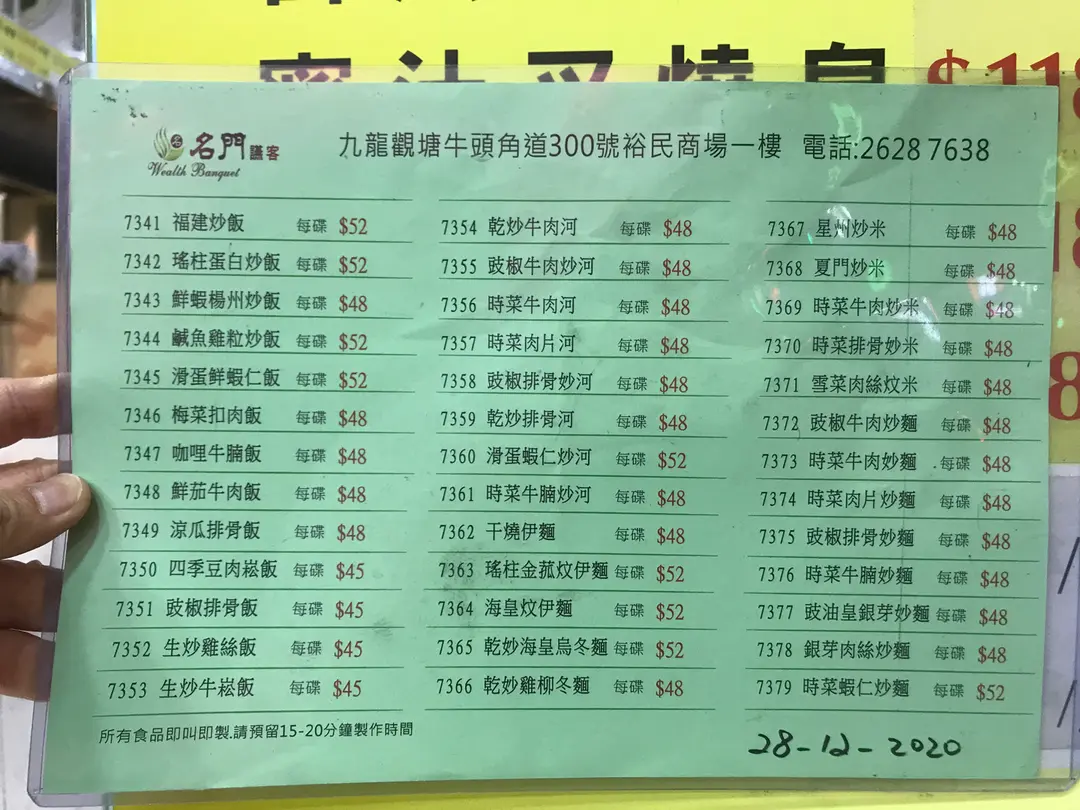 蜜汁叉燒皇 $118
名門讌客
Wealth Banquet
九龍觀塘牛頭角道300號裕民商場一樓 電話:2628 7638
7341 福建炒飯 每碟 $52
7342 瑤柱蛋白炒飯 每碟 $52
7343 鮮蝦楊州炒飯 每碟 $48
7344 鹹魚雞粒炒飯 每碟 $52
7345 滑蛋鮮蝦仁飯 每碟 $52
7346 梅菜扣肉飯 每碟 $48
7347 咖哩牛腩飯 每碟 $48
7348 鮮茄牛肉飯 每碟 $48
7349 涼瓜排骨飯 每碟 $48
7350 四季豆肉崧飯 每碟 $45
7351 豉椒排骨飯 每碟 $45
7352 生炒雞絲飯 每碟 $45
7353 生炒牛崧飯 每碟 $45
7354 乾炒牛肉河 每碟 $48
7355 豉椒牛肉炒河 每碟 $48
7356 時菜牛肉河 每碟 $48
7357 時菜肉片河 每碟 $48
7358 豉椒排骨妙河 每碟 $48
7359 乾炒排骨河 每碟 $48
7360 滑蛋蝦仁炒河 每碟 $52
7361 時菜牛腩炒河 每碟 $48
7362 干燒伊麵 每碟 $48
7363 瑤柱金菰炆伊麵 每碟 $52
7364 海皇炆伊麵 每碟 $52
7365 乾妙海皇烏冬麵 每碟 $52
7366 乾妙雞柳冬麵 每碟 $48
7367 星州炒米 每碟 $48
7368 夏門炒米 每碟 $48
7369 時菜牛肉炒米 每碟 $48
7370 時菜排骨妙米 每碟 $48
7371 雪菜肉絲炆米 每碟 $48
7372 豉椒牛肉炒麵 每碟 $48
7373 時菜牛肉妙麵 每碟 $48
7374 時菜肉片炒麵 每碟 $48
7375 豉椒排骨妙麵 每碟 $48
7376 時菜牛腩妙麵 每碟 $48
7377 豉油皇銀芽妙麵 每碟 $48
7378 銀芽肉絲炒麵 每碟 $48
7379 時菜蝦仁炒麵 每碟 $52
所有食品即叫即製.請預留15-20分鐘製作時間
28-12-2020